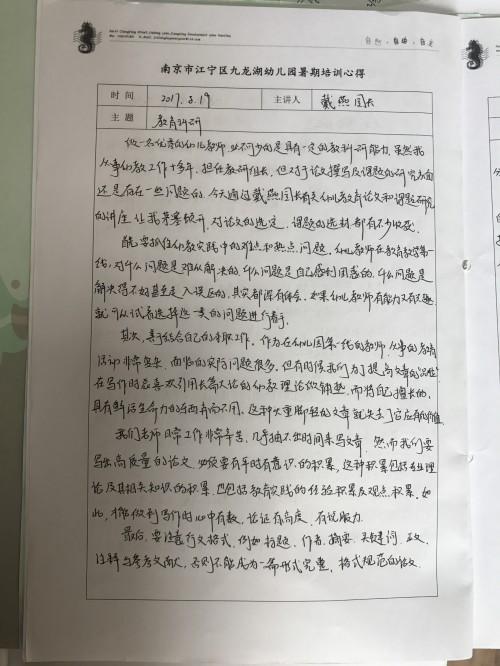 自然 · 自由 · 自主
南京市江宁区九龙湖幼儿园暑期培训心得
时间 2017.8.19 主讲人 戴燕园长
主题 教育科研
做一名优秀的幼儿教师,必不可少的是具有一定的教科研能力.虽然我
从事幼教工作十多年,担任教研组长,但对于论文撰写及课题的研究方面
还是存在一些问题的.今天通过戴燕园长有关幼儿教育论文和课题研究
的讲座,让我茅塞顿开,对论文的选定、课题的选材都有不少收获.
首先要抓住幼教实践中的难点和热点问题,幼儿教师在教育教学第一
线,对什么问题是难以解决的,什么问题是自己感到困惑的,什么问题是
解决得不好甚至走入误区的,其实都深有体会.如果幼儿教师有能力又有兴趣,
就可以试着选择这一类的问题进行着手.
其次,善于结合自己的本职工作,作为在幼儿园第一线的教师,从事的教育
活动非常繁杂,面临的实际问题很多,但有时候我们为了提高文章的"品位"
在写作时总喜欢引用长篇大论的幼教理论做铺垫,而将自己擅长的,
具有鲜活生命力的东西弃而不用,这种头重脚轻的文章就失去了它应有的价值.
我们老师日常工作非常辛苦,几乎抽不出时间来写文章,然而我们要
写出高质量的论文,必须要有平时有意识的积累,这种积累包括专业理
论及其相关知识的积累,也包括教育实践的经验积累及观点积累.如
此,才能做到写作时心中有数,论证有高度,有说服力.
最后,要注意行文格式,例如标题、作者、摘要、关键词、正文、
注释与参考文献,否则不能成为一篇形式完整,格式规范的论文.